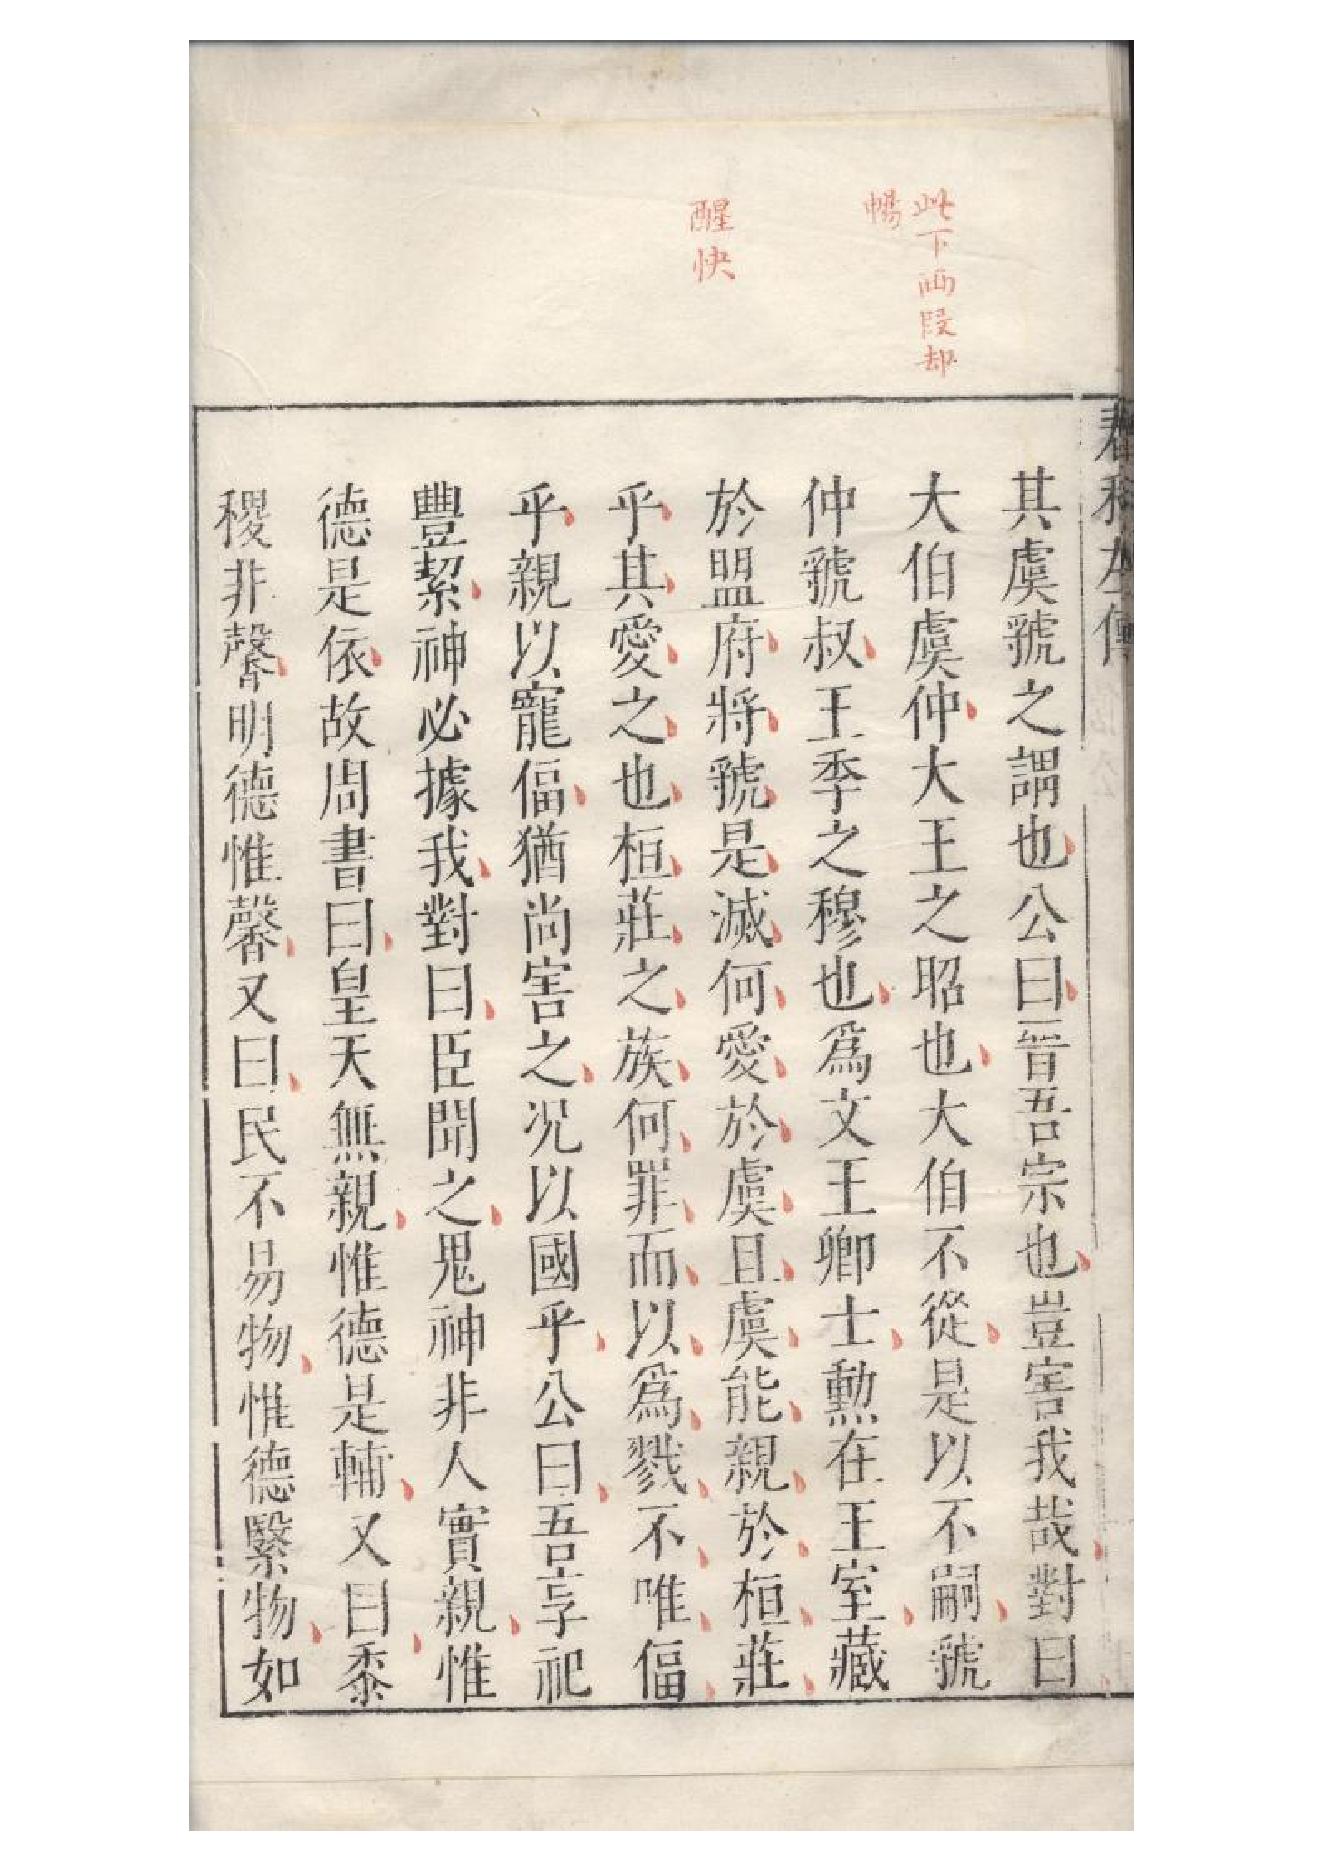 此下兩段却
暢
醒快
春秋左傳
其虞虢之謂也公曰晉吾宗也豈害我哉對曰
大伯虞仲大王之昭也大伯不從是以不嗣虢
仲虢叔王季之穆也爲文王卿士勲在王室藏
於盟府將虢是滅何愛於虞且虞能親於桓莊
乎其愛之也桓莊之族何罪而以爲戮不唯偪
乎親以寵偪猶尚害之况以國乎公曰吾享祀
豐絜神必據我對曰臣聞之鬼神非人實親惟
德是依故周書曰皇天無親惟德是輔又曰黍
稷非馨明德惟馨又曰民不易物惟德繄物如